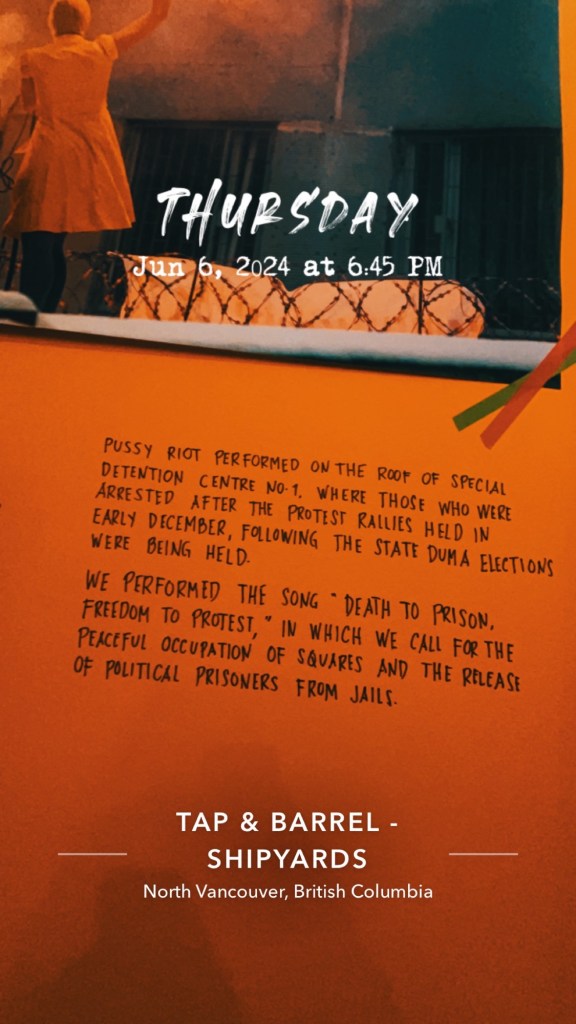 THURSDAY
Jun 6, 2024 at 6:45 PM
PUSSY RIOT PERFORMED ON THE ROOF OF SPECIAL
DETENTION CENTRE NO.1, WHERE THOSE WHO WERE
ARRESTED AFTER THE PROTEST RALLIES HELD IN
EARLY DECEMBER, FOLLOWING THE STATE DUMA ELECTIONS
WERE BEING HELD.
WE PERFORMED THE SONG "DEATH TO PRISON,
FREEDOM TO PROTEST," IN WHICH WE CALL FOR THE
PEACEFUL OCCUPATION OF SQUARES AND THE RELEASE
OF POLITICAL PRISONERS FROM JAILS.
TAP & BARREL -
SHIPYARDS
North Vancouver, British Columbia